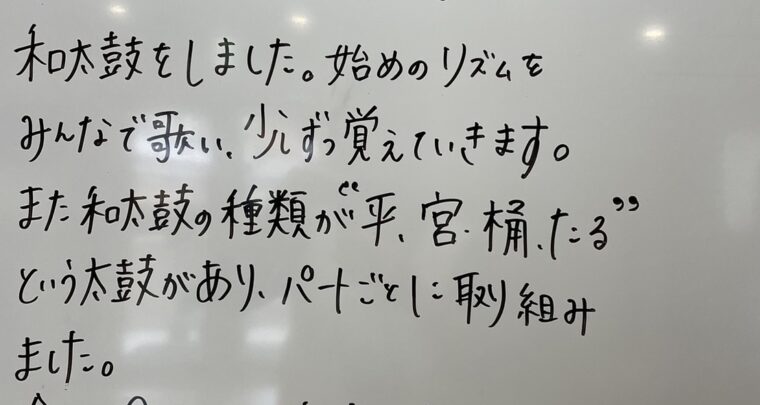 和太鼓をしました。始めのリズムを
みんなで歌い、少しずつ覚えていきます。
また和太鼓の種類が“平、宮、桶、たる”
という太鼓があり、パートごとに取り組み
ました。